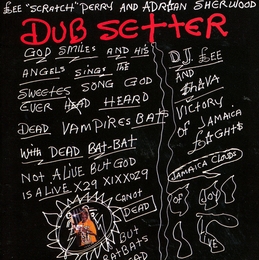 LEE "SCRATCH" PERRY AND ADRIAN SHERWOOD
DUB SETTER
GOD SMILES AND HIS
ANGELS SINGS THE
SWEETES SONG GOD
EVER HEAD HEARD
DEAD VAMPIRES BATS
WITH DEAD BAT-BAT
NOT ALIVE BUT GOD
IS ALIVE X29 XIXXOZ9
CANOT
DEAD
BUT
BATBATS
DEAD
D.J. LEE
AND
VICTORY
OF JAMAICA
LIGHTS
JAMAICA CLOBS
OF JOY
LIVE